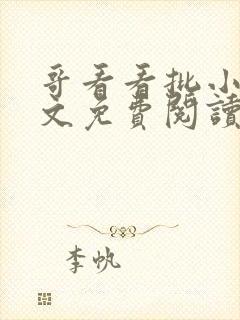 哥看看批小
文免費閱讀
李帆